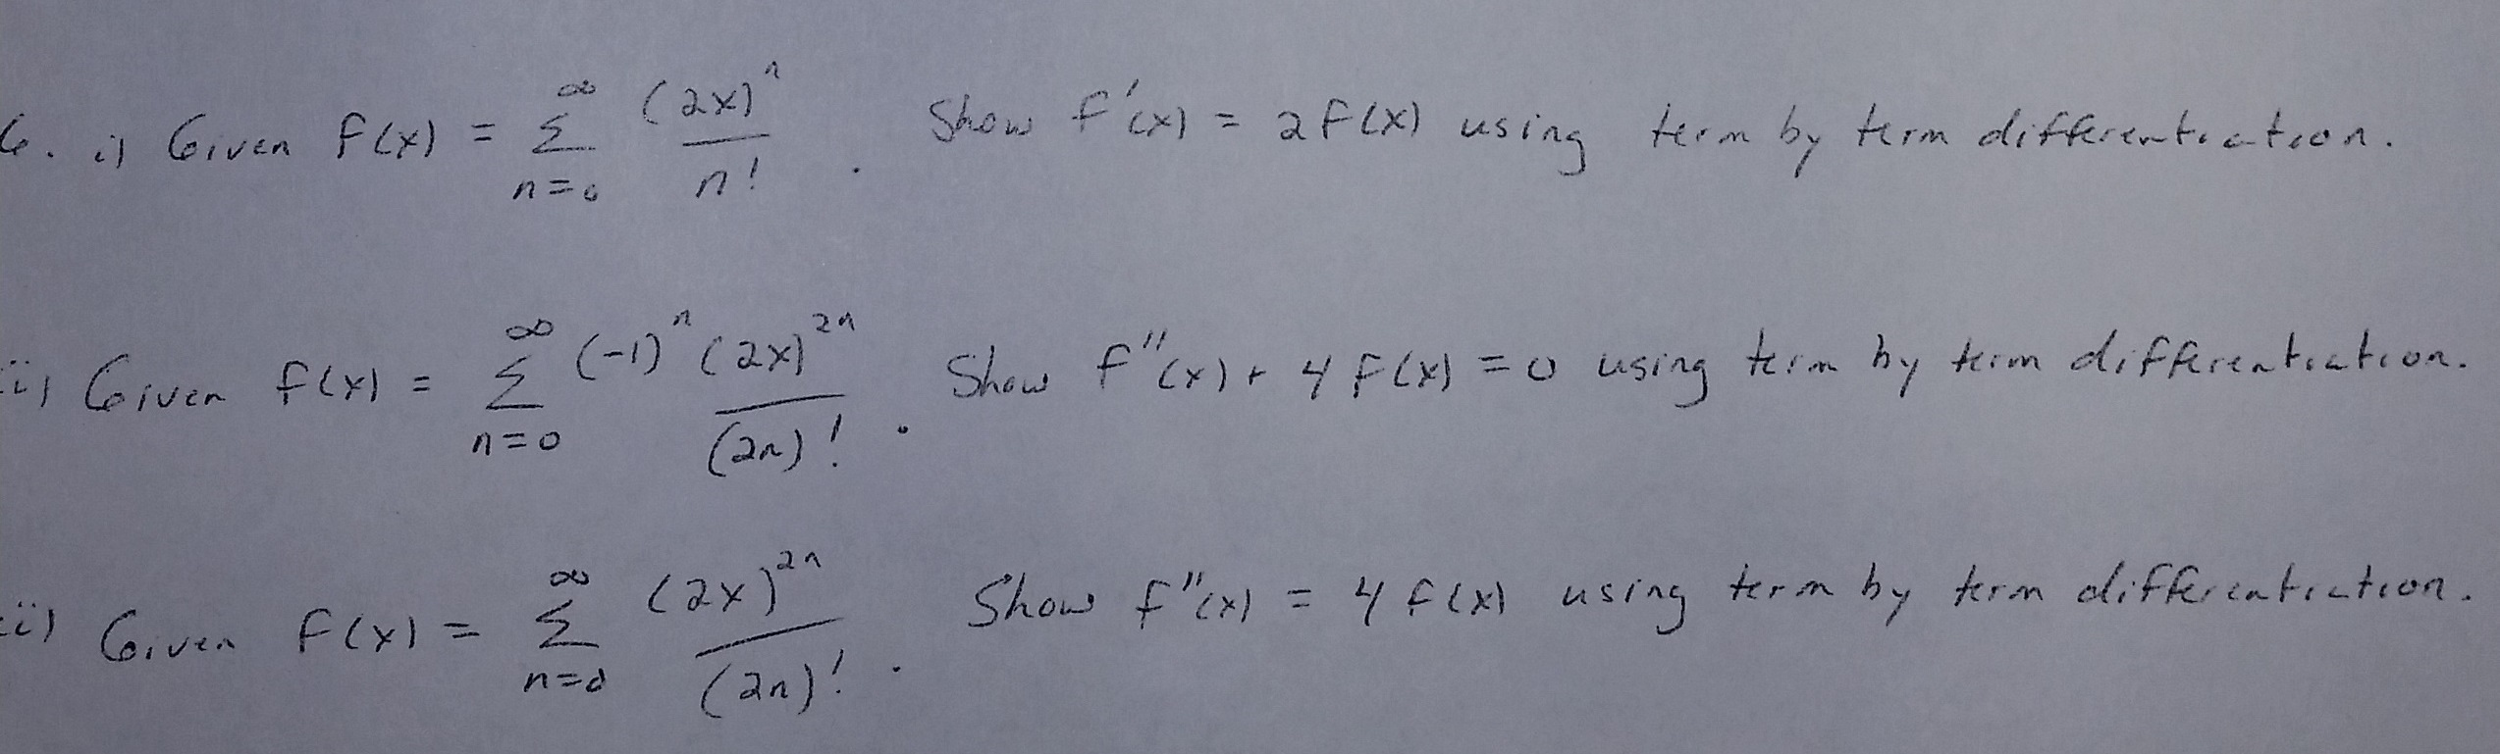 6. i) Given f(x) = ∑_{n=0}^{∞} (2x)^n / n! . Show f'(x) = 2f(x) using term by term differentiation.
ii) Given f(x) = ∑_{n=0}^{∞} (-1)^n (2x)^{2n} / (2n)! . Show f''(x) + 4f(x) = 0 using term by term differentiation.
ii) Given f(x) = ∑_{n=0}^{∞} (2x)^{2n} / (2n)! . Show f''(x) = 4f(x) using term by term differentiation.